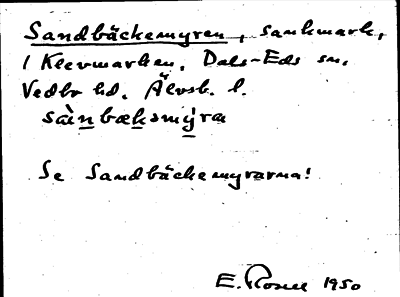 Sandbäckemyren, sankmark,
i Klevmarken, Dals-Eds sn,
Vedbo hd. Älvsb. l.
sànbækəmýra
Se Sandbäckemyrarna!
E. Rosell 1950